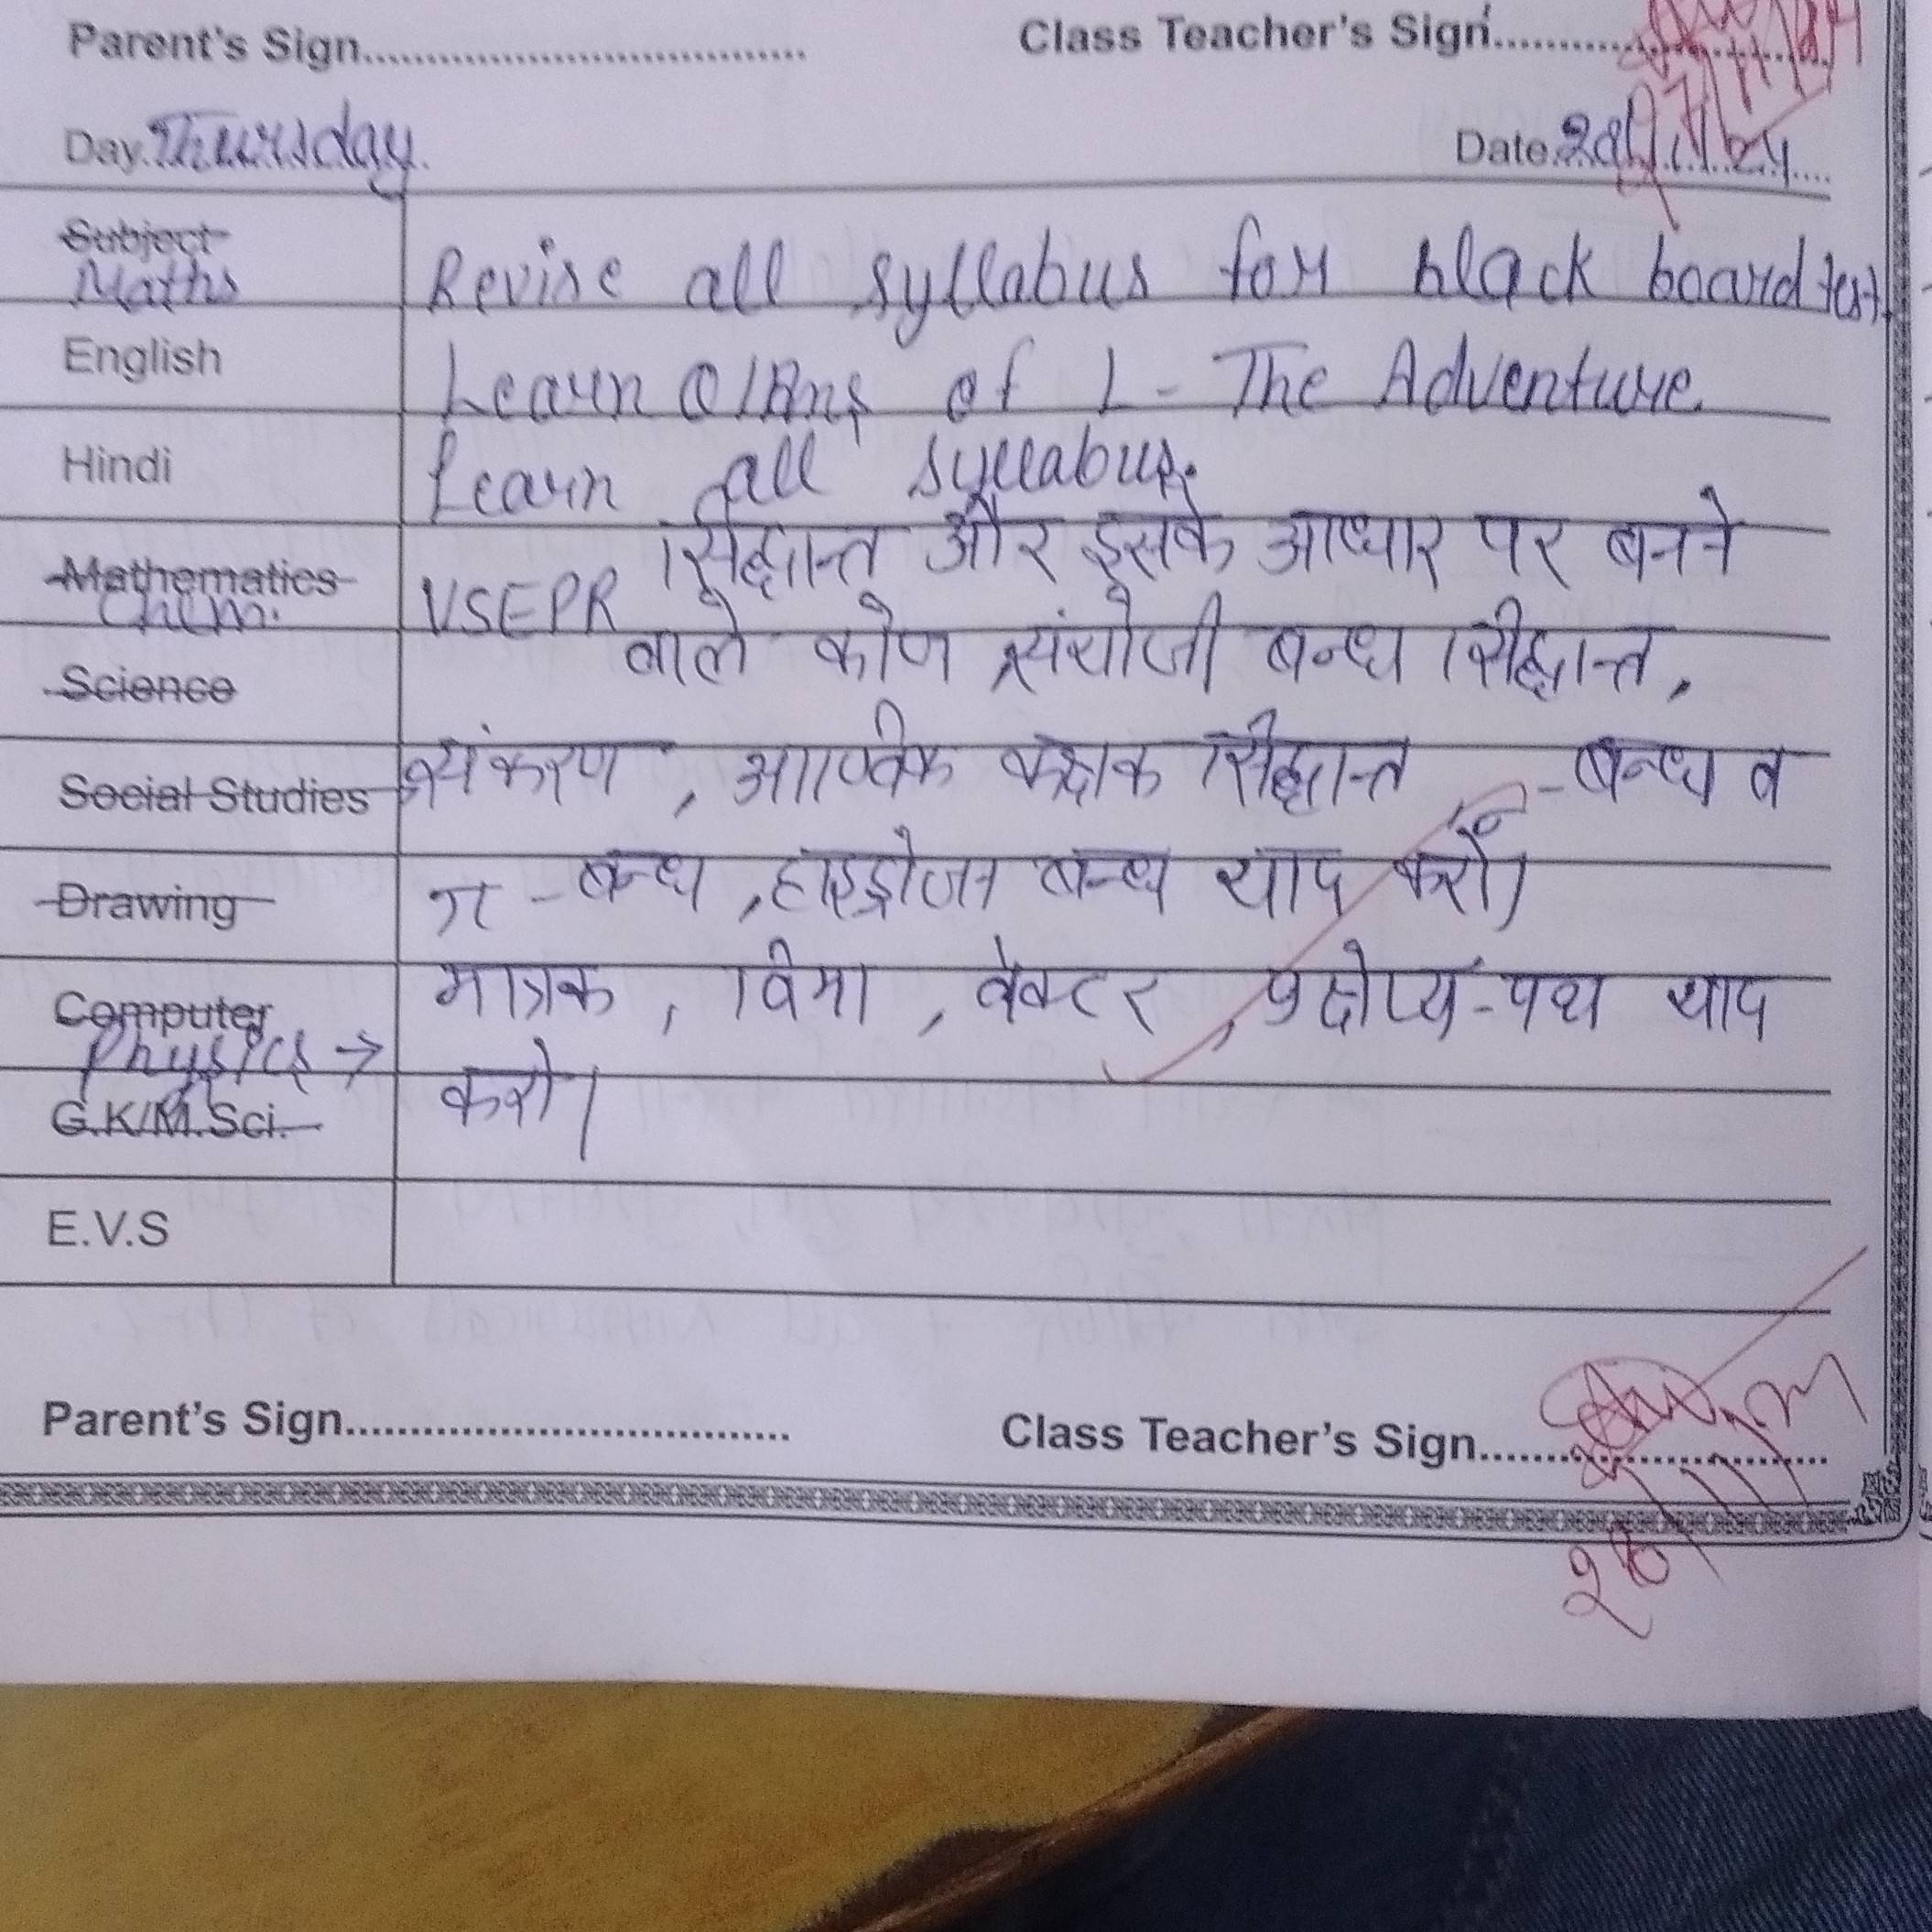 Parent's Sign.................................... Class Teacher's Sign............................
Day. Thursday. Date. 28/11/24
Subject
Maths Revise all syllabus for black board test.
English Learn Q/Ans of L - The Adventure
Hindi Learn all syllabus.
Mathematics
Chem. VSEPR सिद्धान्त और इसके आधार पर बनने
Science वाले कोण संयोजी बन्ध सिद्धान्त,
Social Studies संकरण, आण्विक कक्षक सिद्धान्त, σ - बन्ध व
Drawing π - बन्ध, हाइड्रोजन बन्ध याद करो।
Computer मात्रक, विमा, वेक्टर, प्रक्षेप्य-पथ याद
Physics →
G.K/M.Sci. करो।
E.V.S
Parent's Sign.................................... Class Teacher's Sign............................